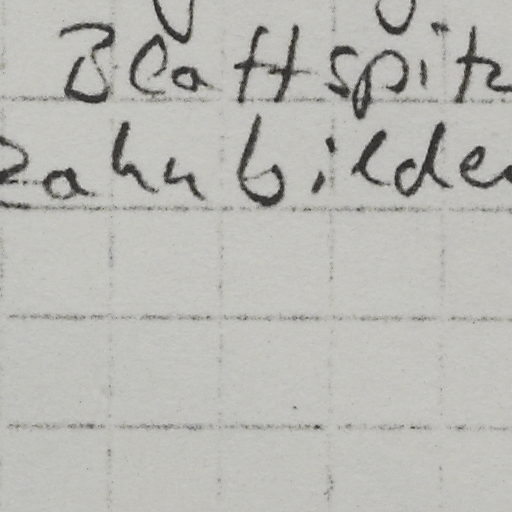 Blattspitz
zahnbilden